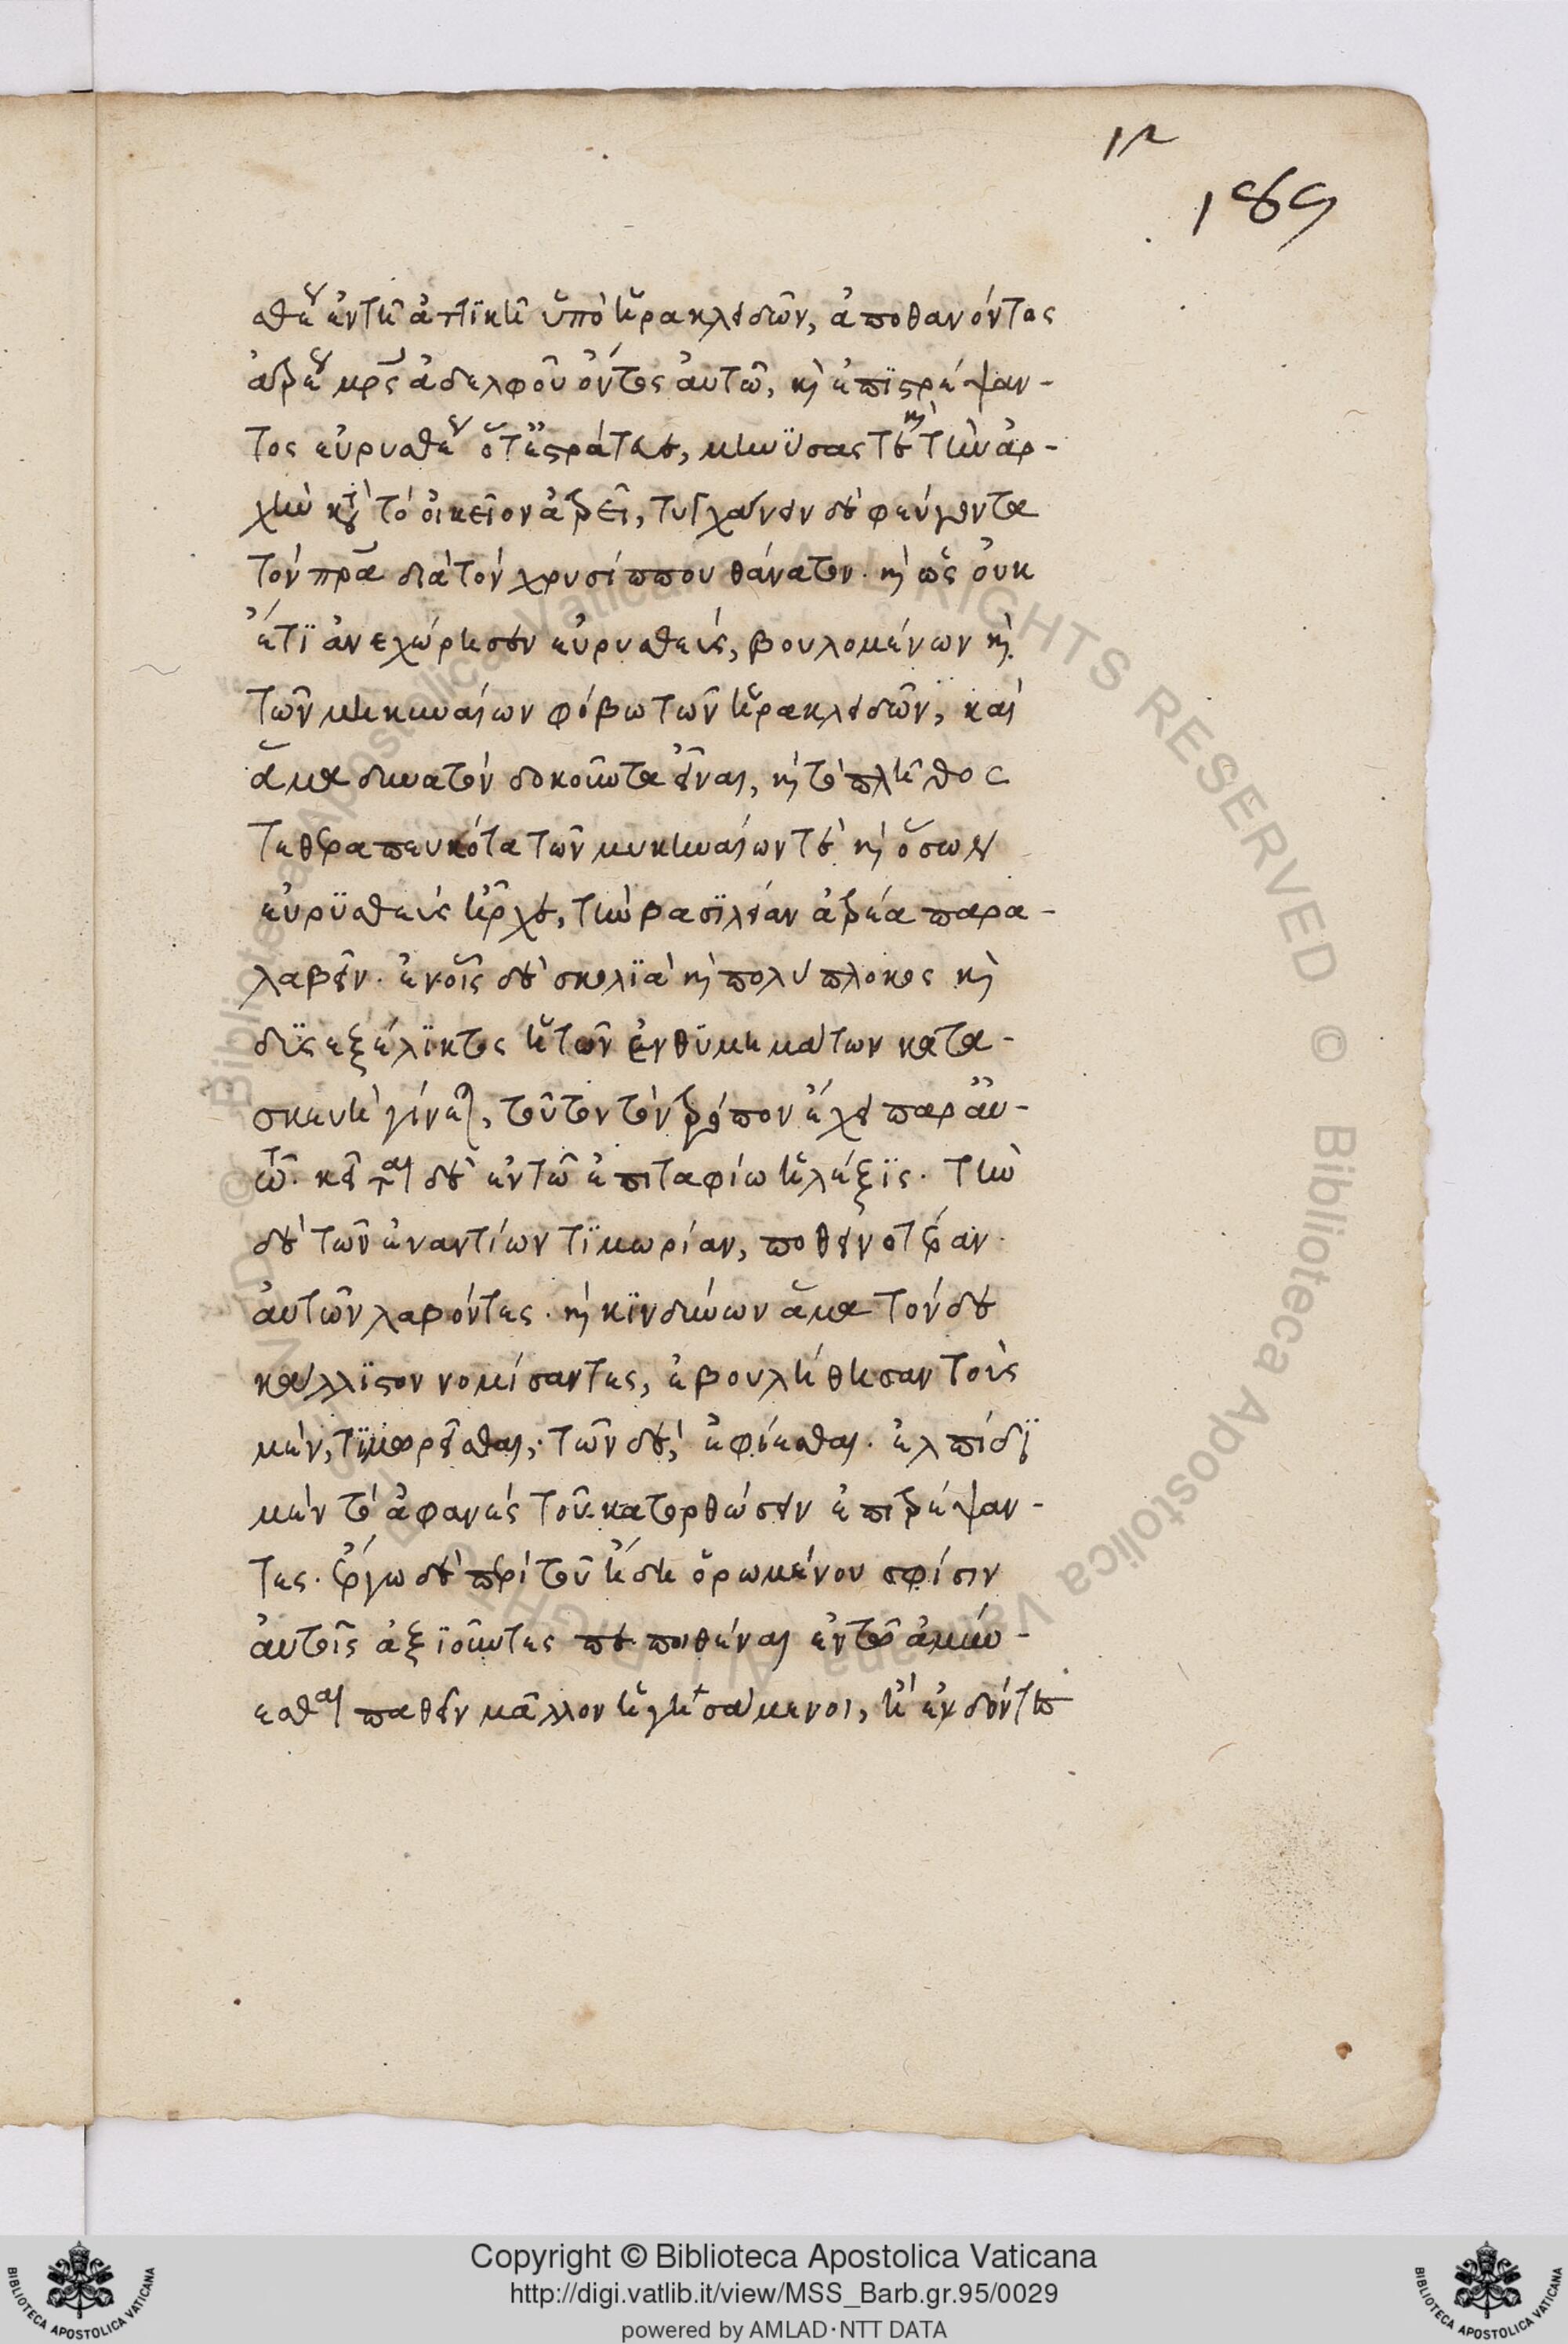 189
σθέως ἐν τῇ ἀττικῇ ὑπὸ ἡρακλειδῶν, ἀποθανόντος
ἀτρέως μρ̅ς ἀδελφοῦ ὄντος αὐτῶ, κὶ ἐπϊτρέψαν-
τος εὐρυσθέως ὅτ' ἐστράτευε, μυκήνας τὲ κὶ τὴν ἀρ-
χὴν κατὰ τὸ οἰκεῖον ἀτρεῖ, τυγχάνειν δὲ φεύγοντα
τὸν πρ̅α διὰ τὸν χρυσίππου θάνατον. κὶ ὡς οὐκ
έτϊ ἀνεχώρησεν εὐρυσθεὺς, βουλομένων κὶ
τῶν μηκηναίων φόβω τῶν ἡρακλειδῶν, καὶ
ἅμα δυνατὸν δοκοῦντα εἶναι, κὶ τὸ πλῆθος
τεθεραπευκότα τῶν μυκηναίων τὲ κὶ ὅσων
εὐρϋσθεὺς ἦρχε, τὴν βασϊλείαν ἀτρέα παρα-
λαβεῖν. ἐν οἷς δὲ σκολϊὰ κὶ πολύπλοκος κὶ
δϋσεξέλϊκτος ἡ τῶν ἐνθϋμημάτων κατα-
σκευὴ γίνεται, τοῦτον τὸν τρόπον ἔχει παρ' αὐ-
τῶ. κεῖται δὲ ἐν τῶ ἐπιταφίω ἡ λέξϊς. τὴν
δὲ τῶν ἐναντίων τϊμωρίαν, ποθεινοτέραν
αὐτῶν λαβόντες. κὶ κϊνδύνων ἅμα τόνδε
κάλλϊστον νομίσαντες, ἐβουλήθησαν τοὺς
μὲν, τϊμωρεῖσθαι, τῶν δὲ, ἐφίεσθαι. ἐλπίδϊ
μὲν τὸ ἀφανὲς τοῦ κατορθώσειν ἐπιτρέψαν-
τες. ἔργω δὲ περὶ τοῦ ἤδη ὁρωμένου σφίσιν
αὐτοῖς ἀξϊοῦντες πεποιθέναι ἐν τῶ ἀμύν-
εσθαι παθεῖν μᾶλλον ἡγησάμενοι, ἢ ἐνδόντες
Copyright © Biblioteca Apostolica Vaticana
http://digi.vatlib.it/view/MSS_Barb.gr.95/0029
powered by AMLAD·NTT DATA